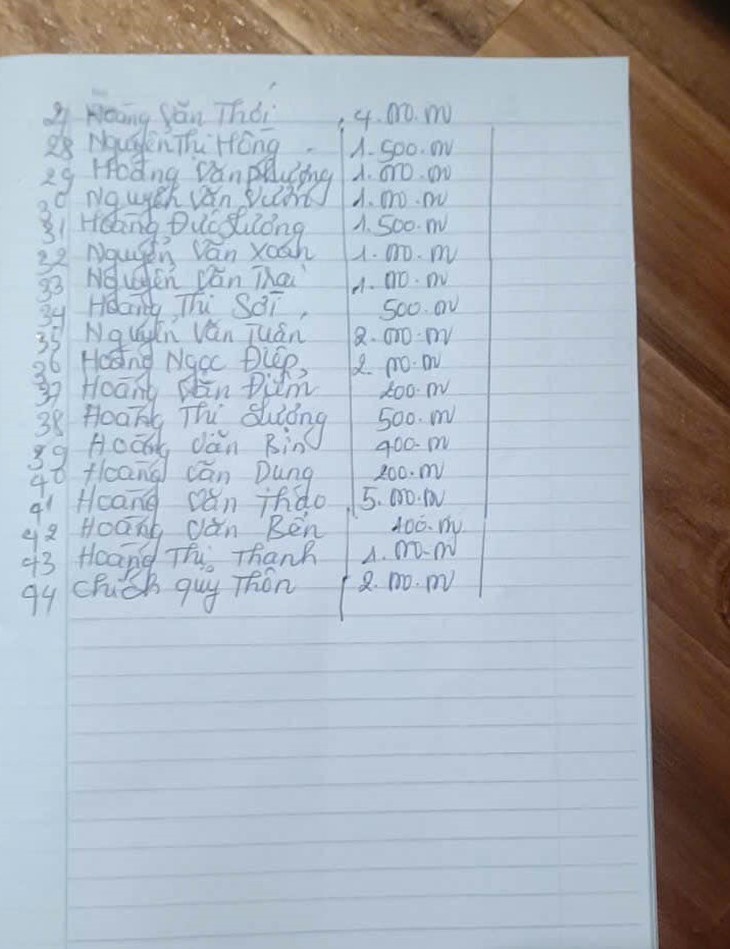 27 Hoàng Văn Thới 4.000.000
28 Nguyễn Thị Hồng 1.500.000
29 Hoàng Văn Phượng 1.000.000
30 Nguyễn Văn Vườn 1.000.000
31 Hoàng Đức Lương 1.500.000
32 Nguyễn Văn Xoan 1.000.000
33 Nguyễn Văn Thai 1.000.000
34 Hoàng Thị Sới 500.000
35 Nguyễn Văn Tuân 2.000.000
36 Hoàng Ngọc Điệp 2.000.000
37 Hoàng Văn Điềm 200.000
38 Hoàng Thị Lương 500.000
39 Hoàng Văn Bin 400.000
40 Hoàng Văn Dung 200.000
41 Hoàng Văn Thao 5.000.000
42 Hoàng Văn Bến 100.000
43 Hoàng Thị Thanh 1.000.000
44 Chích quỹ Thôn 2.000.000